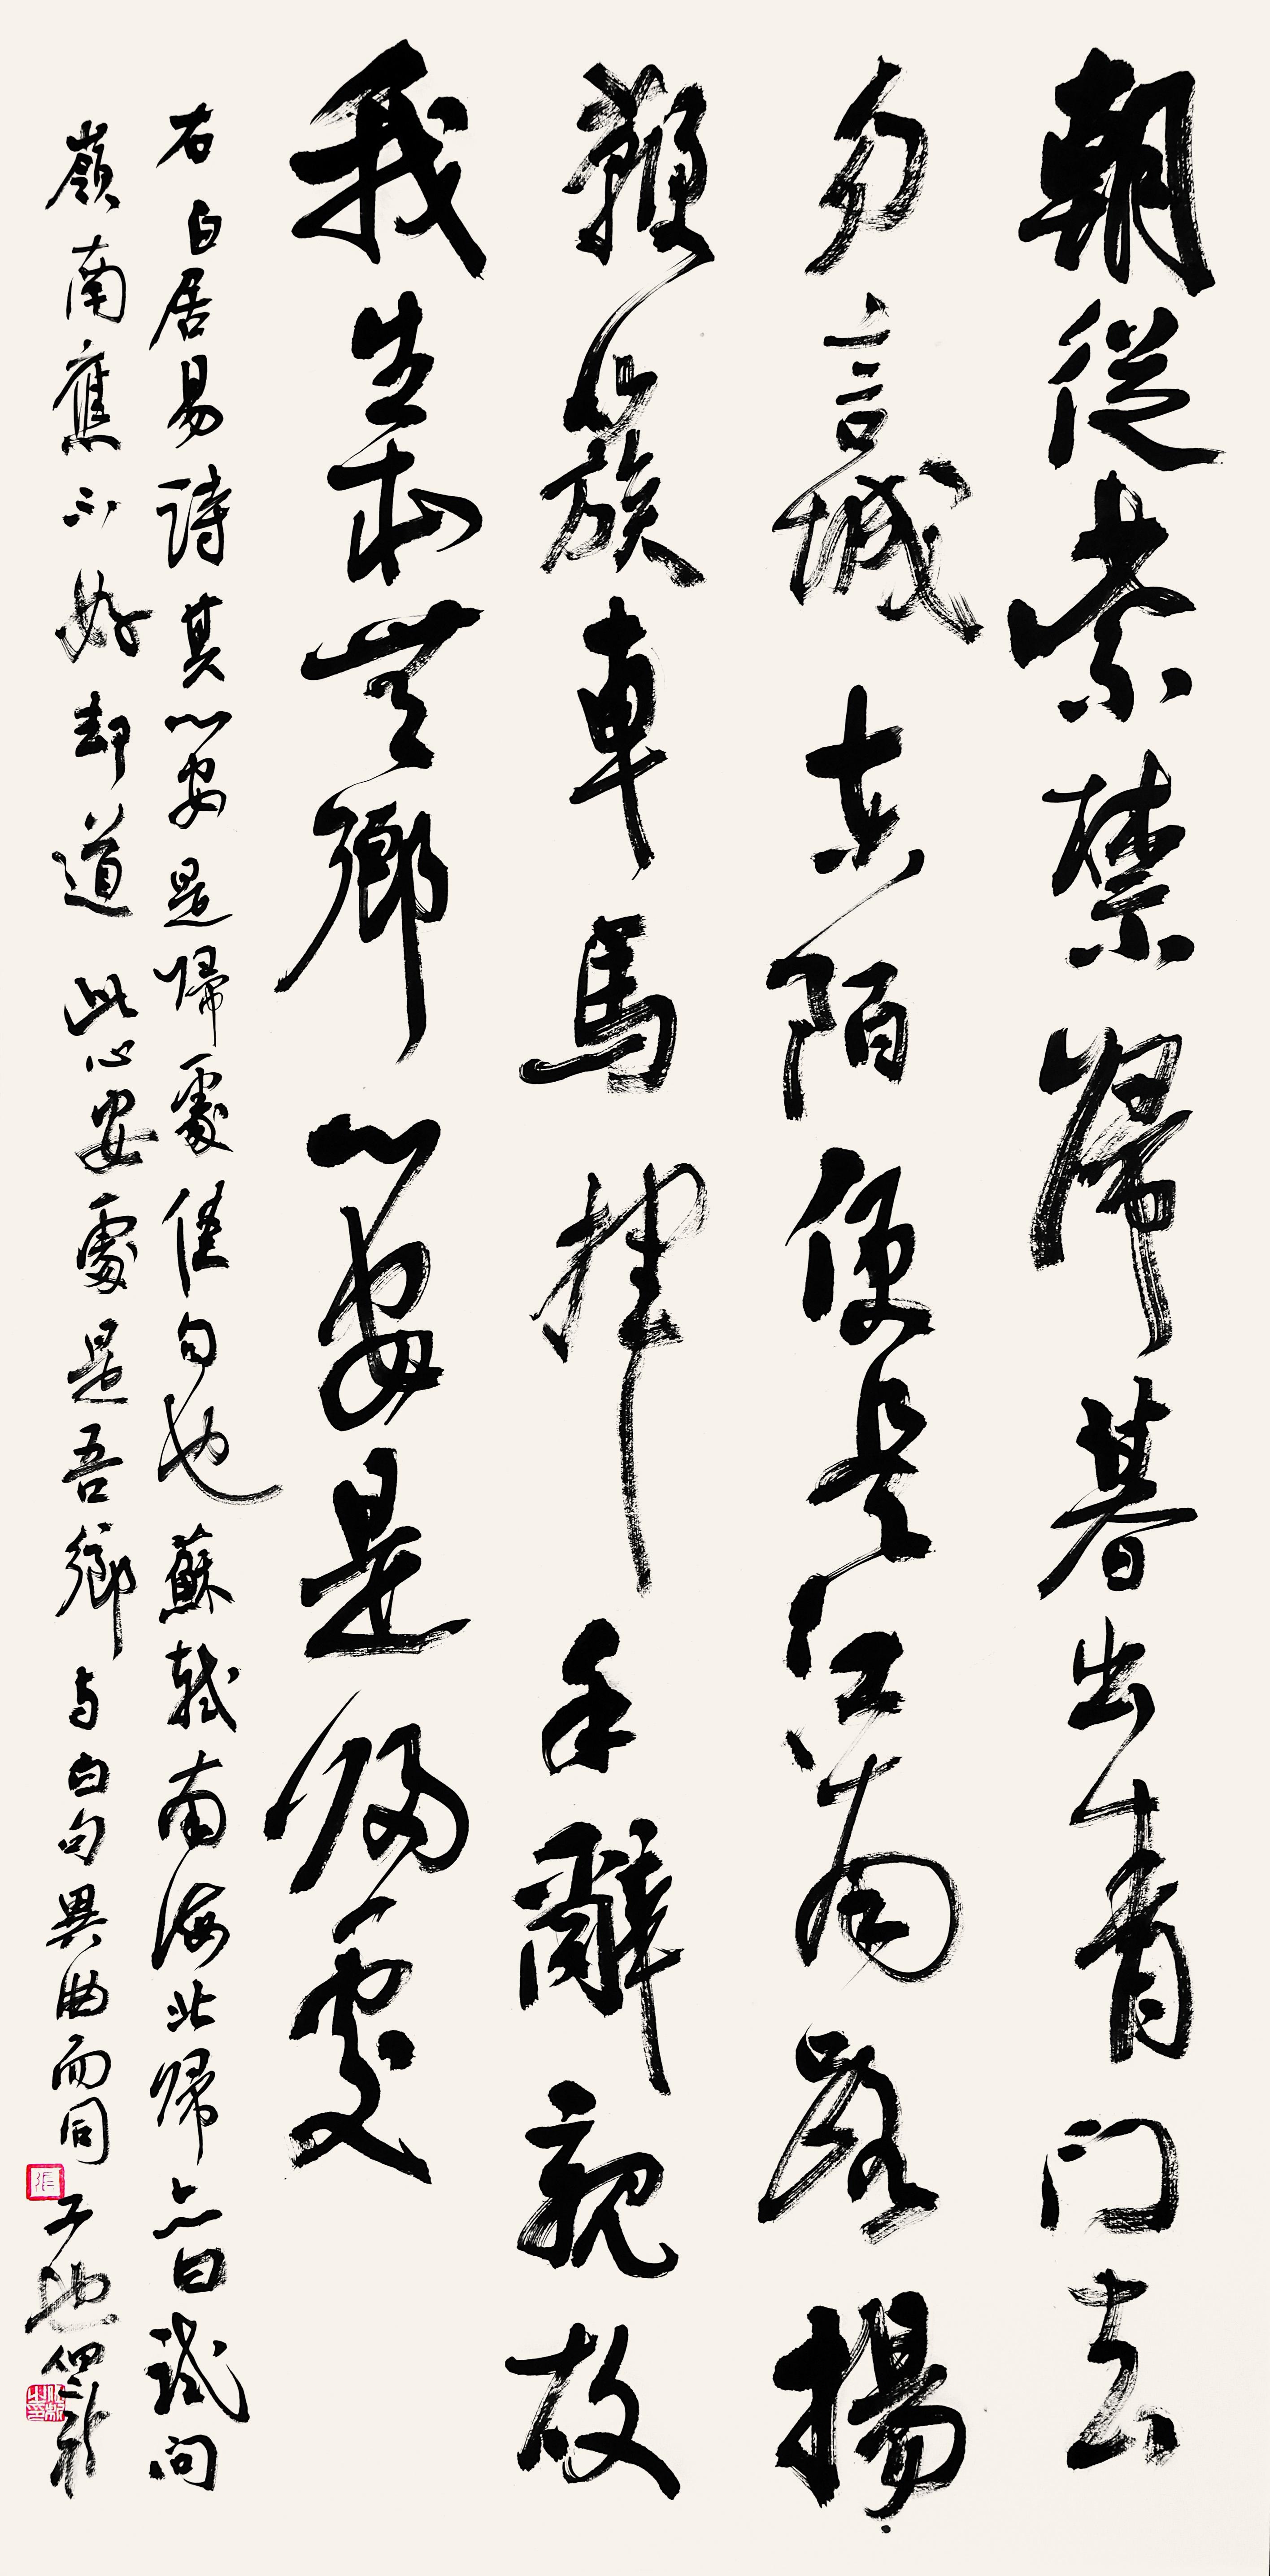 朝從紫禁歸暮出青门去
勿言城东陌便是江南路揚
鞭簇車馬揮手辭親故
我生本無鄉心安是归處
右白居易詩其心安是歸處佳句也蘇軾南海北歸亦曰試問
嶺南應不好却道此心安處是吾鄉与白句異曲而同工也